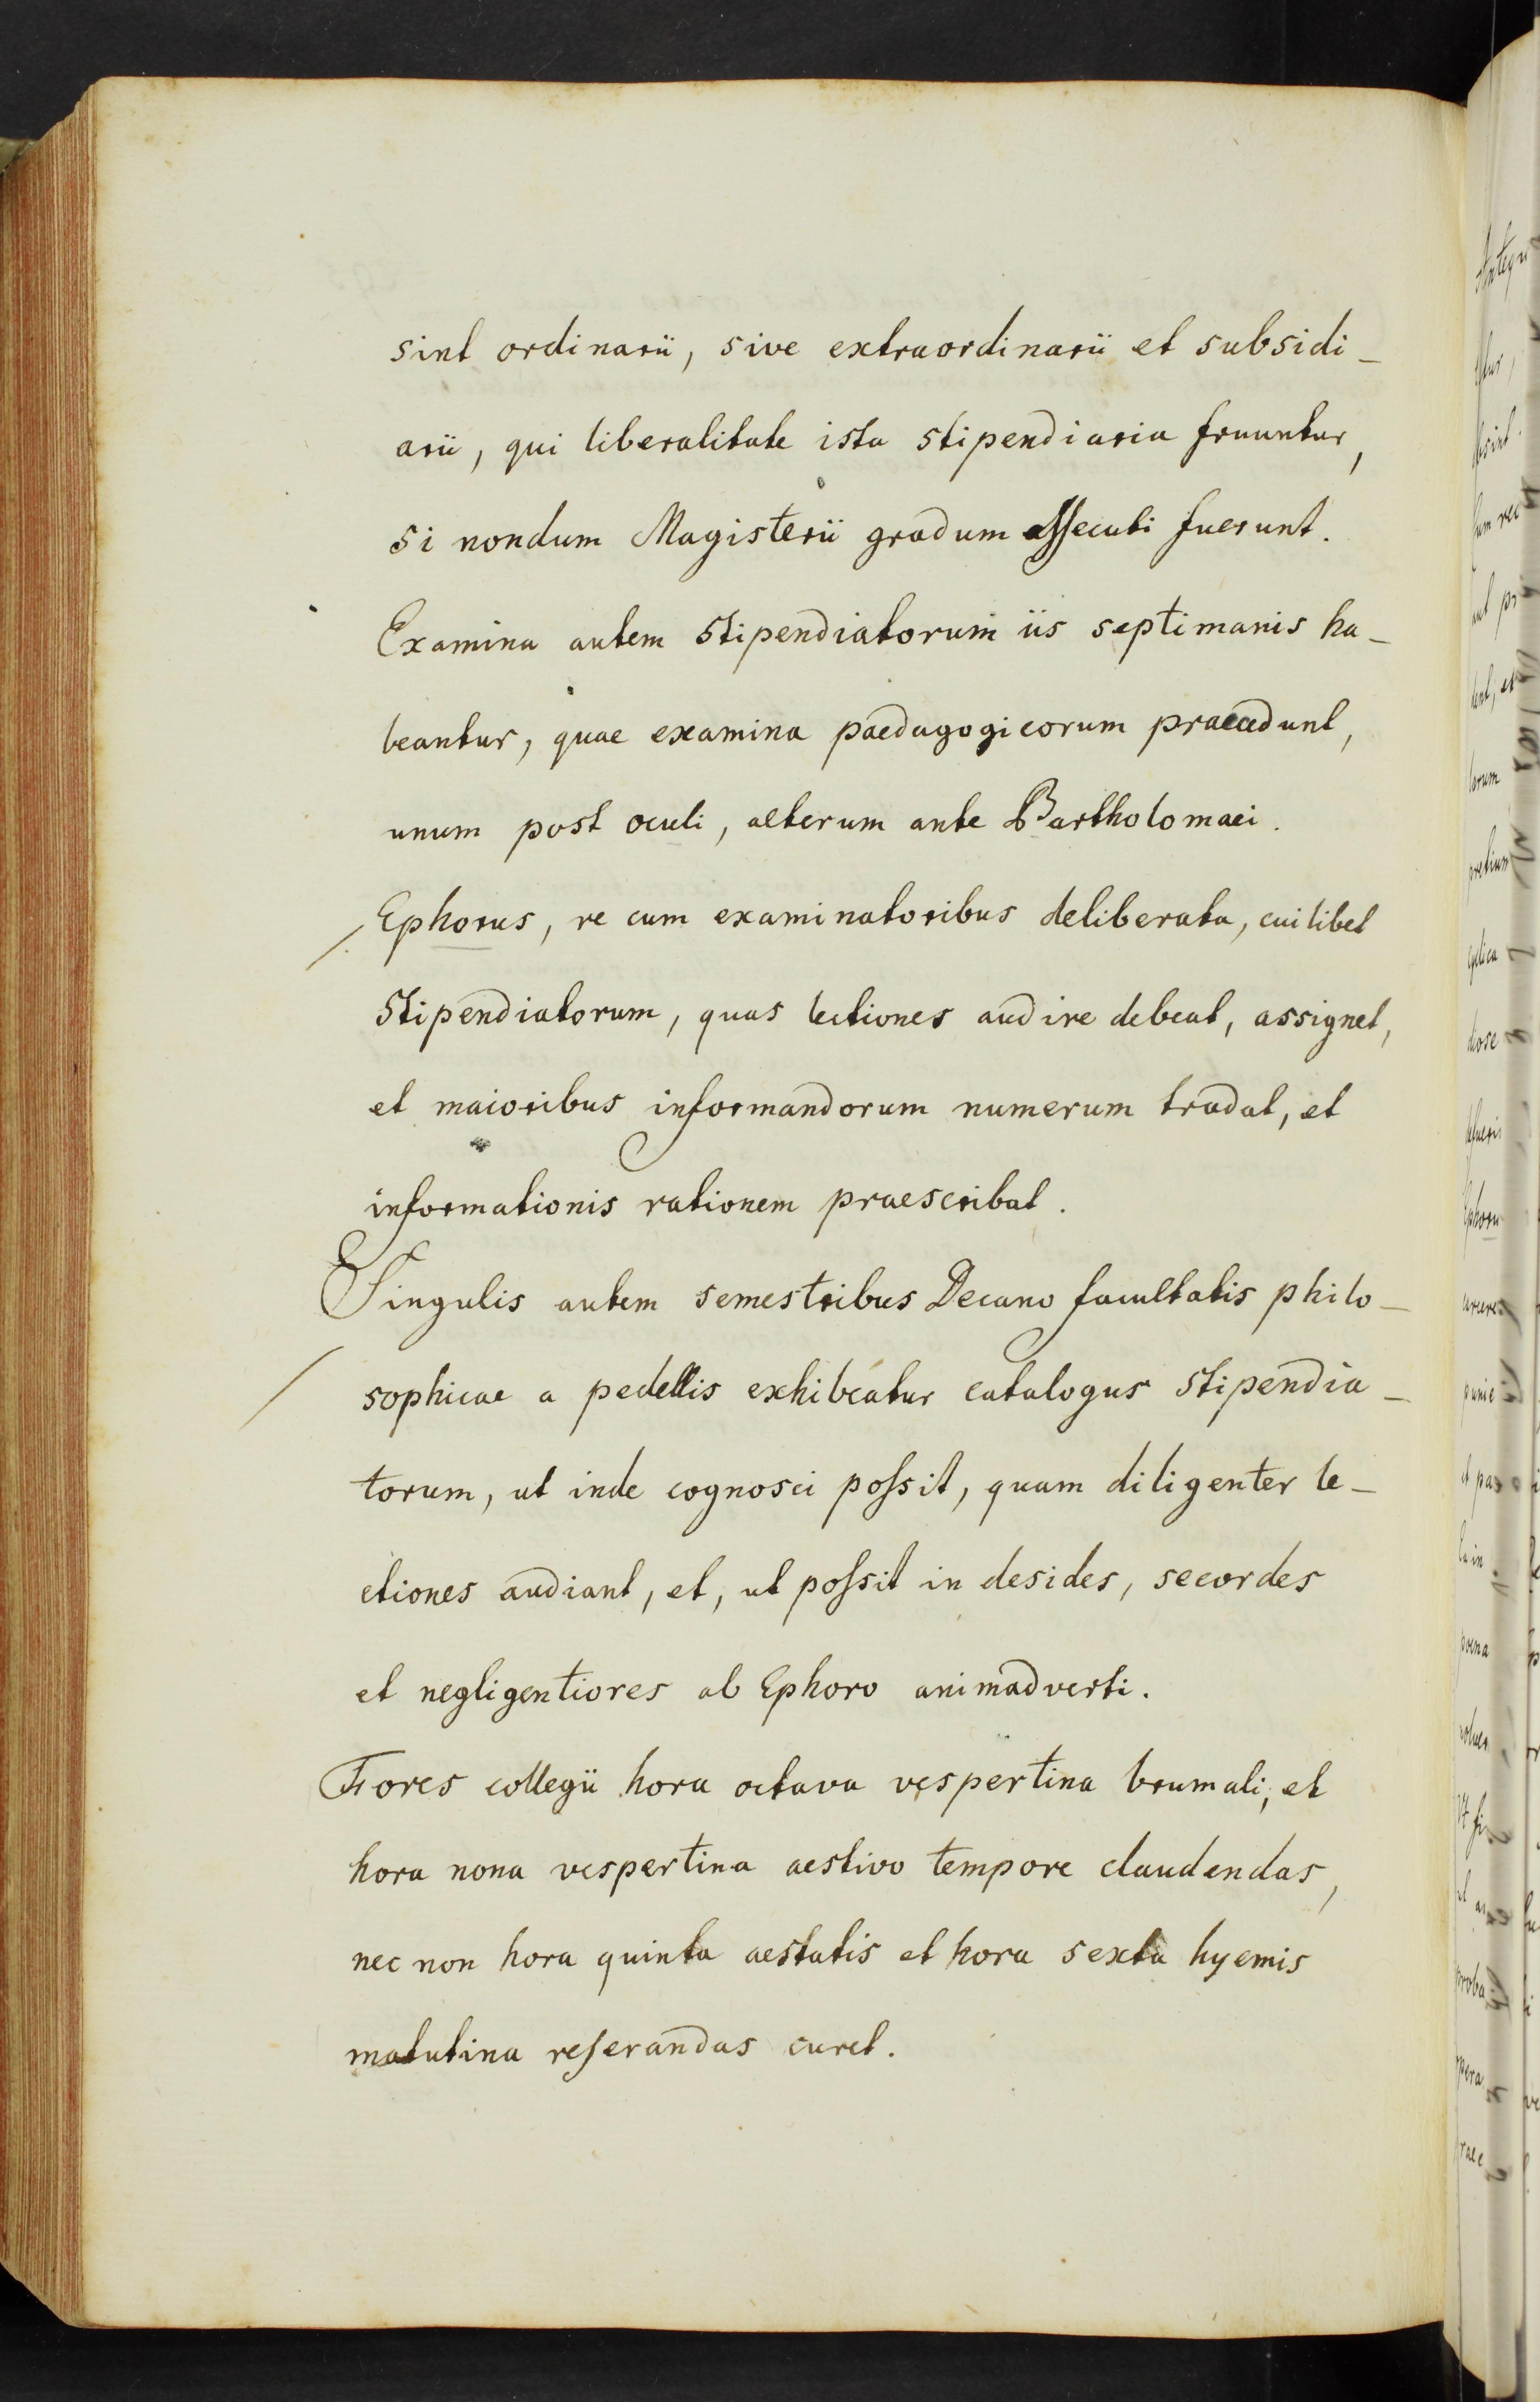 sint ordinarii, sive extraordinarii et subsidi-
arii, qui liberalitate ista stipendiaria fruuntur,
si nondum Magisterii gradum assecuti fuerunt.
Examina autem Stipendiatorum iis septimanis ha-
beantur, quae examina paedagogicorum praecedunt,
unum post oculi, alterum ante Bartholomaei.
Ephorus, re cum examinatoribus deliberata, cuilibet
Stipendiatorum, quas lectiones audire debeat, assignet,
et maioribus informandorum numerum tradat, et
informationis rationem praescribat.
Singulis autem semestribus Decano facultatis philo-
sophicae a pedellis exhibeatur catalogus Stipendia-
torum, ut inde cognosci possit, quam diligenter le-
ctiones audiant, et, ut possit in desides, secordes
et negligentiores ab Ephoro animadverti.
Fores collegii hora octava vespertina brumali, et
hora nona vespertina aestivo tempore claudendas,
nec non hora quinta aestatis et hora sexta hyemis
matutina reserandas curet.